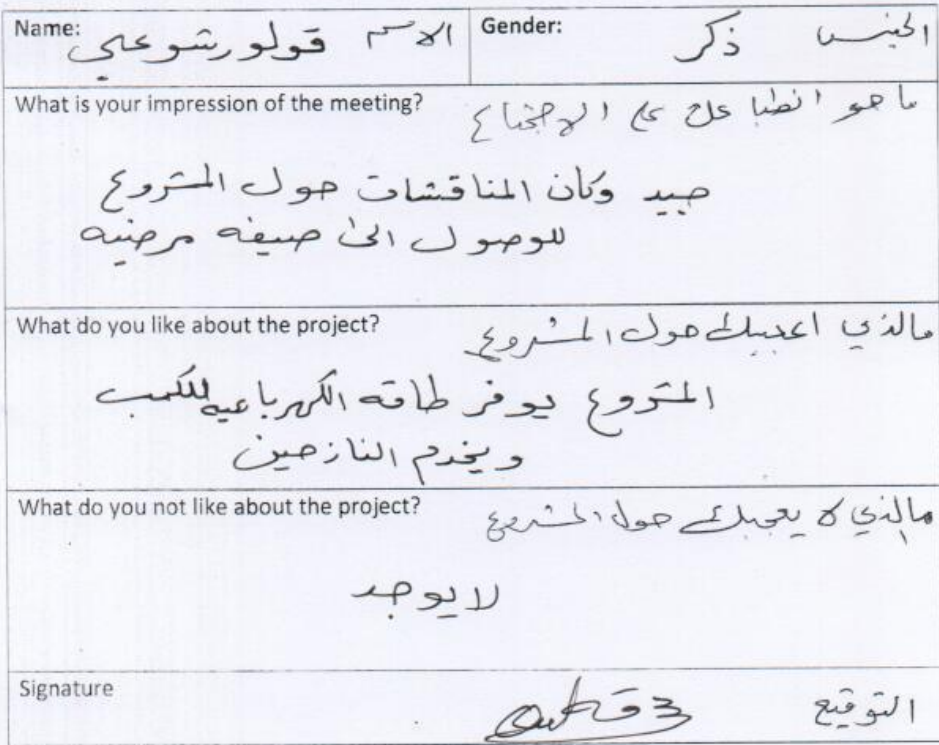 Name: الاسم قولو رشو علي
Gender: الجنس ذكر
What is your impression of the meeting? ما هو انطباعك على الاجتماع
جيد وكان المناقشات حول المشروع
للوصول الى صيغه مرضيه
What do you like about the project? مالذي اعجبك حول المشروع
المشروع يوفر طاقه الكهربائيه للكمب
ويخدم النازحين
What do you not like about the project? مالذي لا يعجبك حول المشروع
لا يوجد
Signature التوقيع